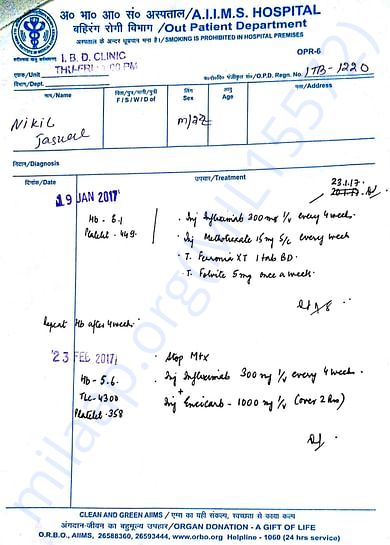 अ० भा० आ० सं० अस्पताल/A.I.I.M.S. HOSPITAL
बहिरंग रोगी विभाग/Out Patient Department
अस्पताल के अन्दर धूम्रपान मना है।/SMOKING IS PROHIBITED IN HOSPITAL PREMISES
OPR-6
I. B. D. CLINIC
एकक/Unit
विभाग/Dept.
O.P.D. Regn. No. ITB-1220
नाम/Name
F/S/W/D of
लिंग
Sex
आयु
Age
पता/Address
Nikil
Jaswal
M/22
निदान/Diagnosis
दिनांक/Date
उपचार/Treatment
23.1.17
19 JAN 2017
Hb - 6.1
Platelet - 449
Inj Infliximab 300 mg I/V every 4 week.
Inj Methotrexate 15 mg S/C every week
T. Ferronia XT 1 tab BD.
T. Folvite 5 mg once a week.
Repeat Hb after 4 week.
23 FEB 2017
Stop Mtx
Hb - 5.6.
Inj Infliximab 300 mg I/V every 4 week.
+
TLC - 4300
Inj Encicarb - 1000 mg I/V (over 2 hrs)
Platelet - 358
milaap.org
CLEAN AND GREEN AIIMS / एम्स का यही संकल्प, स्वच्छता से काया कल्प
अंगदान-जीवन का बहुमूल्य उपहार/ORGAN DONATION - A GIFT OF LIFE
O.R.B.O., AIIMS, 26588360, 26593444, www.orbo.org Helpline - 1060 (24 hrs service)